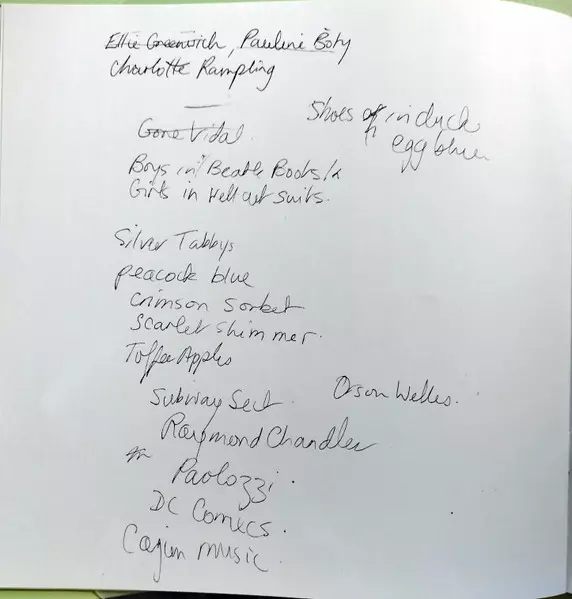 Ellie Greenwich, Pauline Boty
Charlotte Rampling
Gore Vidal.
Shoes in duck
egg blue
Boys in Beatle Boots &
Girls in cut suits.
Silver Tabbys
peacock blue
Crimson Sorbet
Scarlet shimmer.
Toffee Apples
Subway Sect.
Orson Welles.
Raymond Chandler
Paolozzi.
DC Comics.
Cajun music.